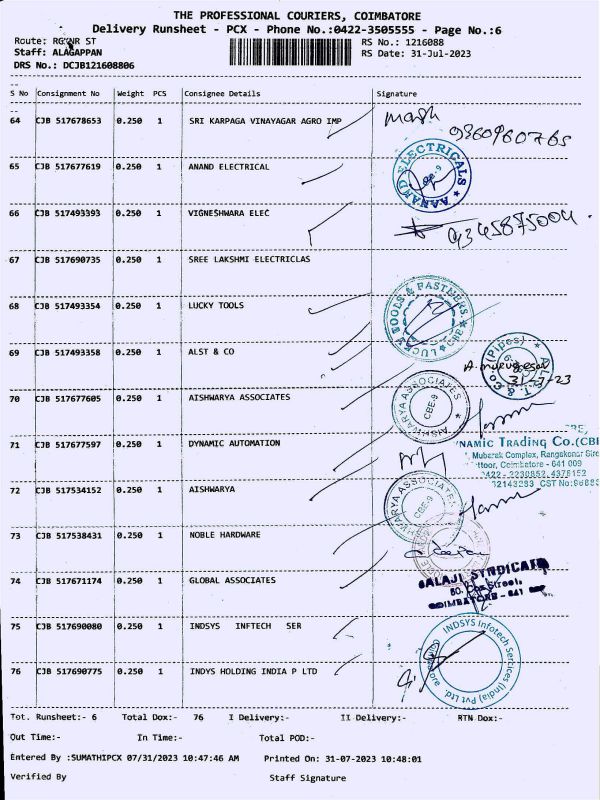 THE PROFESSIONAL COURIERS, COIMBATORE
Delivery Runsheet - PCX - Phone No.:0422-3505555 - Page No.:6
Route: RGKNR ST
RS No.: 1216088
Staff: ALAGAPPAN
RS Date: 31-Jul-2023
DRS No.: DCJB121608806
S No Consignment No Weight PCS Consignee Details Signature
64 CJB 517678653 0.250 1 SRI KARPAGA VINAYAGAR AGRO IMP
9360960765
65 CJB 517677619 0.250 1 ANAND ELECTRICAL
AANAND ELECTRICALS
66 CJB 517493393 0.250 1 VIGNESHWARA ELEC
9345875004
67 CJB 517690735 0.250 1 SREE LAKSHMI ELECTRICLAS
68 CJB 517493354 0.250 1 LUCKY TOOLS
LUCKY TOOLS & FASTNERS CBE
69 CJB 517493358 0.250 1 ALST & CO
A. murugesan
31-7-23
70 CJB 517677605 0.250 1 AISHWARYA ASSOCIATES
AISHWARYA ASSOCIATES
CBE-9
71 CJB 517677597 0.250 1 DYNAMIC AUTOMATION
NAMIC TRADING CO.(CBE
Mubarak Complex, Rangakonar Stre
ttoor, Coimbatore - 641 009
72 CJB 517534152 0.250 1 AISHWARYA
WARYA ASSOCIATES
CBE-9
73 CJB 517538431 0.250 1 NOBLE HARDWARE
74 CJB 517671174 0.250 1 GLOBAL ASSOCIATES
BALAJI SYNDICATE
75 CJB 517690080 0.250 1 INDSYS INFTECH SER
INDSYS Infotech Services (India) Pvt Ltd
76 CJB 517690775 0.250 1 INDYS HOLDING INDIA P LTD
Tot. Runsheet:- 6 Total Dox:- 76 I Delivery:- II Delivery:- RTN Dox:-
Out Time:- In Time:- Total POD:-
Entered By :SUMATHIPCX 07/31/2023 10:47:46 AM Printed On: 31-07-2023 10:48:01
Verified By Staff Signature